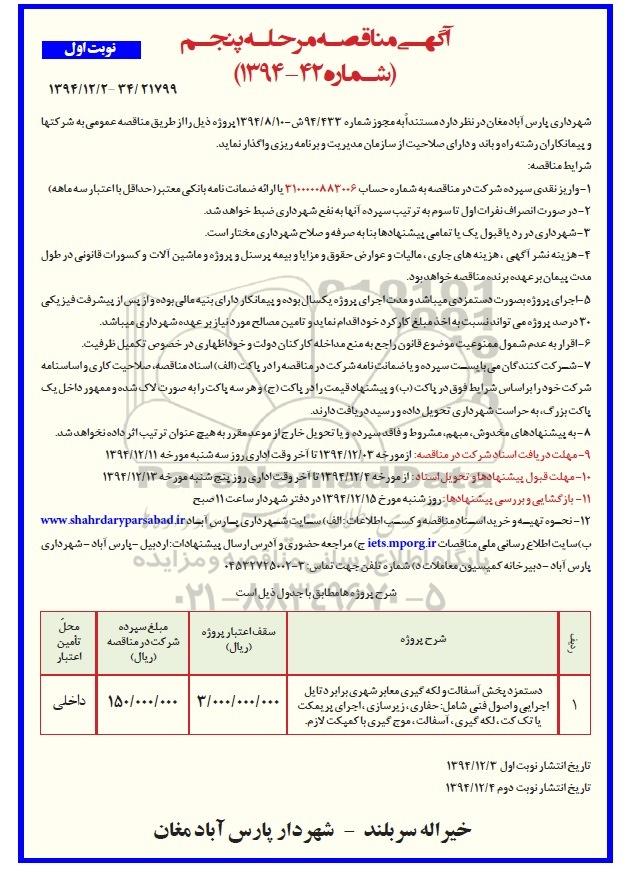 آگهـی مناقصـه مرحلـه پنجـم
نوبت اول
(شماره ۴۲-۱۳۹۴)
۳۴/۲۱۷۹۹ -۱۳۹۴/۱۲/۲
شهرداری پارس آباد مغان در نظر دارد مستنداً به مجوز شماره ۹۴/۴۳۳ش-۱۳۹۴/۸/۱۰ پروژه ذیل را از طریق مناقصه عمومی به شرکتها
و پیمانکاران رشته راه و باند و دارای صلاحیت از سازمان مدیریت و برنامه ریزی واگذار نماید.
شرایط مناقصه:
۱-واریز نقدی سپرده شرکت در مناقصه به شماره حساب ۳۱۰۰۰۰۰۸۸۳۰۰۶ یا ارائه ضمانت نامه بانکی معتبر (حداقل با اعتبار سه ماهه)
۲-در صورت انصراف نفرات اول تا سوم به ترتیب سپرده آنها به نفع شهرداری ضبط خواهد شد.
۳-شهرداری در رد یا قبول یک یا تمامی پیشنهادها بنا به صرفه و صلاح شهرداری مختار است.
۴-هزینه نشر آگهی ، هزینه های جاری ، مالیات و عوارض حقوق و مزایا و بیمه پرسنل و پروژه و ماشین آلات و کسورات قانونی در طول
مدت پیمان بر عهده برنده مناقصه خواهد بود.
۵-اجرای پروژه بصورت دستمزدی میباشد و مدت اجرای پروژه یکسال بوده و پیمانکار دارای بنیه مالی بوده و از پس از پیشرفت فیزیکی
۳۰ درصد پروژه می تواند نسبت به اخذ مبلغ کارکرد خود اقدام نماید و تامین مصالح مورد نیاز بر عهده شهرداری میباشد.
۶-اقرار به عدم شمول ممنوعیت موضوع قانون راجع به منع مداخله کارکنان دولت و خوداظهاری در خصوص تکمیل ظرفیت.
۷-شرکت کنندگان می بایست سپرده و یا ضمانت نامه شرکت در مناقصه را در پاکت (الف) اسناد مناقصه، صلاحیت کاری و اساسنامه
شرکت خود را بر اساس شرایط فوق در پاکت (ب) و پیشنهاد قیمت را در پاکت (ج) و هر سه پاکت را به صورت لاک شده و ممهور داخل یک
پاکت بزرگ، به حراست شهرداری تحویل داده و رسید دریافت دارند.
۸-به پیشنهادهای مخدوش، مبهم، مشروط و فاقد سپرده و یا تحویل خارج از موعد مقرر به هیچ عنوان ترتیب اثر داده نخواهد شد.
۹-مهلت دریافت اسناد شرکت در مناقصه: از مورخه ۱۳۹۴/۱۲/۰۳ تا آخر وقت اداری روز سه شنبه مورخه ۱۳۹۴/۱۲/۱۱
۱۰-مهلت قبول پیشنهادها و تحویل اسناد: از مورخه ۱۳۹۴/۱۲/۴ تا آخر وقت اداری روز پنج شنبه مورخه ۱۳۹۴/۱۲/۱۳
۱۱- بازگشایی و بررسی پیشنهادها: روز شنبه مورخ ۱۳۹۴/۱۲/۱۵ در دفتر شهردار ساعت ۱۱ صبح
۱۲-نحـوه تهیـه و خریـد اسـناد مناقصـه و کسـب اطلاعـات: الف) سـایت شـهرداری پـارس آبـاد www.shahrdaryparsabad.ir
ب) سایت اطلاع رسانی ملی مناقصات iets.mporg.ir ج) مراجعه حضوری و آدرس ارسال پیشنهادات: اردبیل -پارس آباد -شهرداری
پارس آباد -دبیرخانه کمیسیون معاملات د) شماره تلفن جهت تماس: ۳-۰۴۵۳۲۷۲۵۰۰۲
ParsNamadData
پایگاه اطلاع رسانی مناقصه و مزایده
۰۲۱-۸۸۳۴۹۶۷۰-۵
شرح پروژه ها مطابق با جدول ذیل است
ردیف	شرح پروژه	سقف اعتبار پروژه (ریال)	مبلغ سپرده شرکت در مناقصه (ریال)	محلّ تأمین اعتبار
۱	دستمزد پخش آسفالت و لکه گیری معابر شهری برابر دتایل	۳/۰۰۰/۰۰۰/۰۰۰	۱۵۰/۰۰۰/۰۰۰	داخلی
اجرایی و اصول فنی شامل: حفاری ، زیرسازی ، اجرای پریمکت
یا تک کت ، لکه گیری ، آسفالت ، موج گیری با کمپکت لازم.
تاریخ انتشار نوبت اول ۱۳۹۴/۱۲/۳
تاریخ انتشار نوبت دوم ۱۳۹۴/۱۲/۴
خیراله سربلند - شهردار پارس آباد مغان